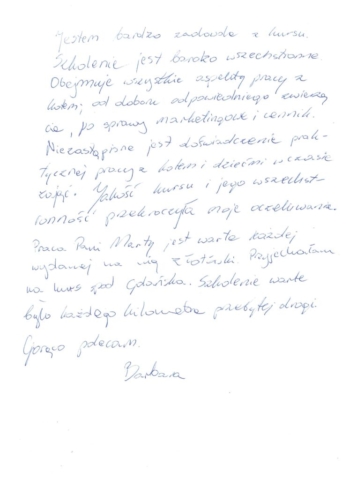 Jestem bardzo zadowolona z kursu.
Szkolenie jest bardzo wszechstronne
Obejmuje wszystkie aspekty pracy z
kotem; od doboru odpowiedniego zwierzę
cia, po sprawy marketingowe i cennik.
Niezastąpione jest doświadczenie prak-
tycznej pracy z kotem i dziećmi w czasie
zajęć. Jakość kursu i jego wszechst-
ronność przekroczyła moje oczekiwania.
Praca Pani Marty jest warta każdej
wydanej na nią złotówki. Przyjechałam
na kurs spod Gdańska. Szkolenie warte
było każdego kilometra przebytej drogi.
Gorąco polecam.
Barbara